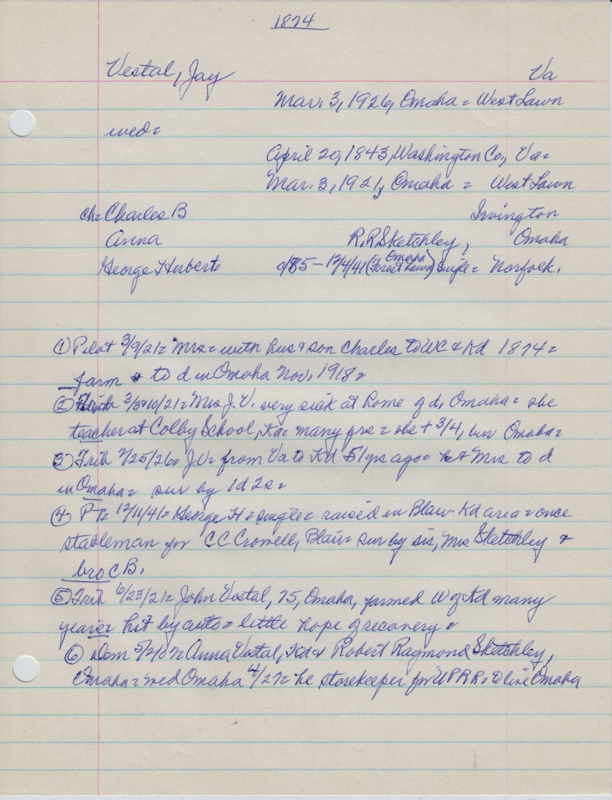 1874
Vestal, Jay Va
Mar. 3, 1926, Omaha = West Lawn
wed=
April 20, 1843, Washington Co, Va=
Mar. 3, 1921, Omaha = West Lawn
ch= Charles B Irvington
Anna R.R Sketchley, Omaha
George Herbert= 0/85 - 12/4/41 (Omaha Forest Lawn) single= Norfolk.
① Pilot 3/9/21= Mrs= with hus & son Charles to WC & Kd 1874=
farm & to d in Omaha Nov, 1918=
② 3/3&10/21= Mrs J.V. very sick at home of d, Omaha= she
teacher at Colby School, Kd= many yrs= she + 3/4, bur Omaha=
3) Trib 2/25/26= J.V= from Va to Kd 51 yrs ago= Mrs to d
in Omaha= sur by 1d 2s=
④ PT= 12/11/41= George H= single= raised in Blair-Kd area= once
stableman for CC Crowell, Blair= sur by sis, Mrs Sketchley &
bro CB.
⑤ Trib 6/23/21= John Vestal, 75, Omaha, farmed W of Kd many
years= hit by auto= little hope of recovery=
⑥ Dem 5/2/07= Anna Vestal, Kd & Robert Raymond Sketchley,
Omaha= wed Omaha 4/27= he storekeeper for UPRR= to live Omaha